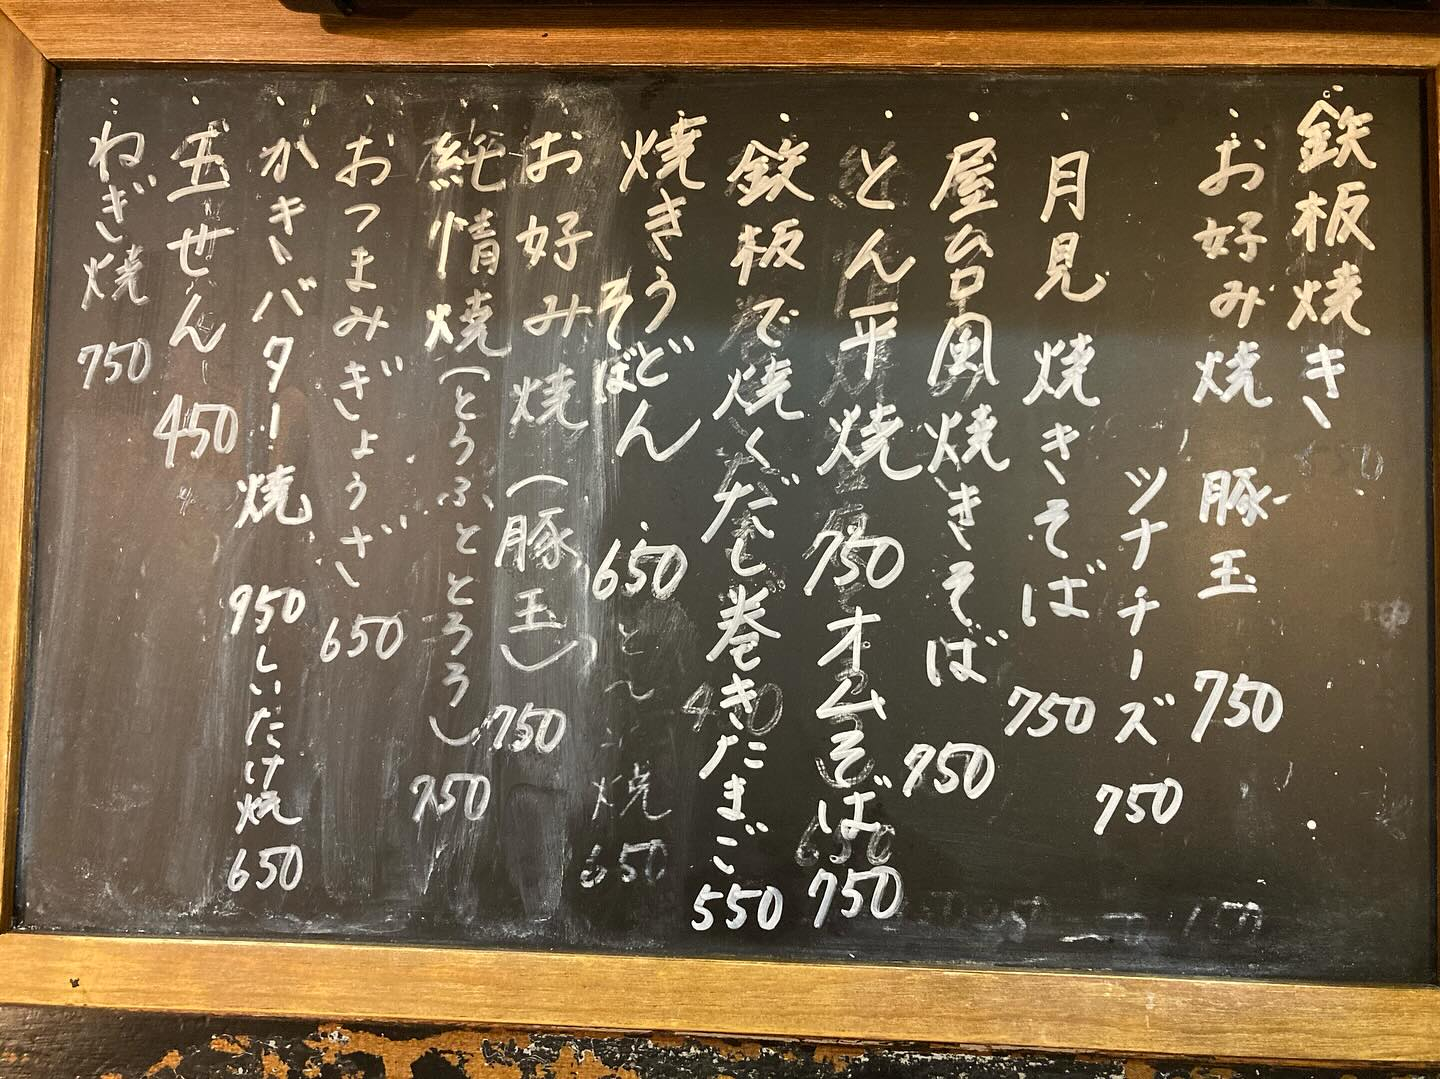 鉄板焼き
お好み焼 豚玉 750
ツナチーズ 750
月見焼きそば 750
屋台風焼きそば 750
とん平焼 750
オムそば 750
鉄板で焼くだし巻きたまご 550
焼きうどん 650
そばん
お好み焼(豚玉) 750
純情焼(とうふととろろ) 750
おつまみぎょうざ 650
かきバター焼 950
しいたけ焼 650
玉せん 450
ねぎ焼 750